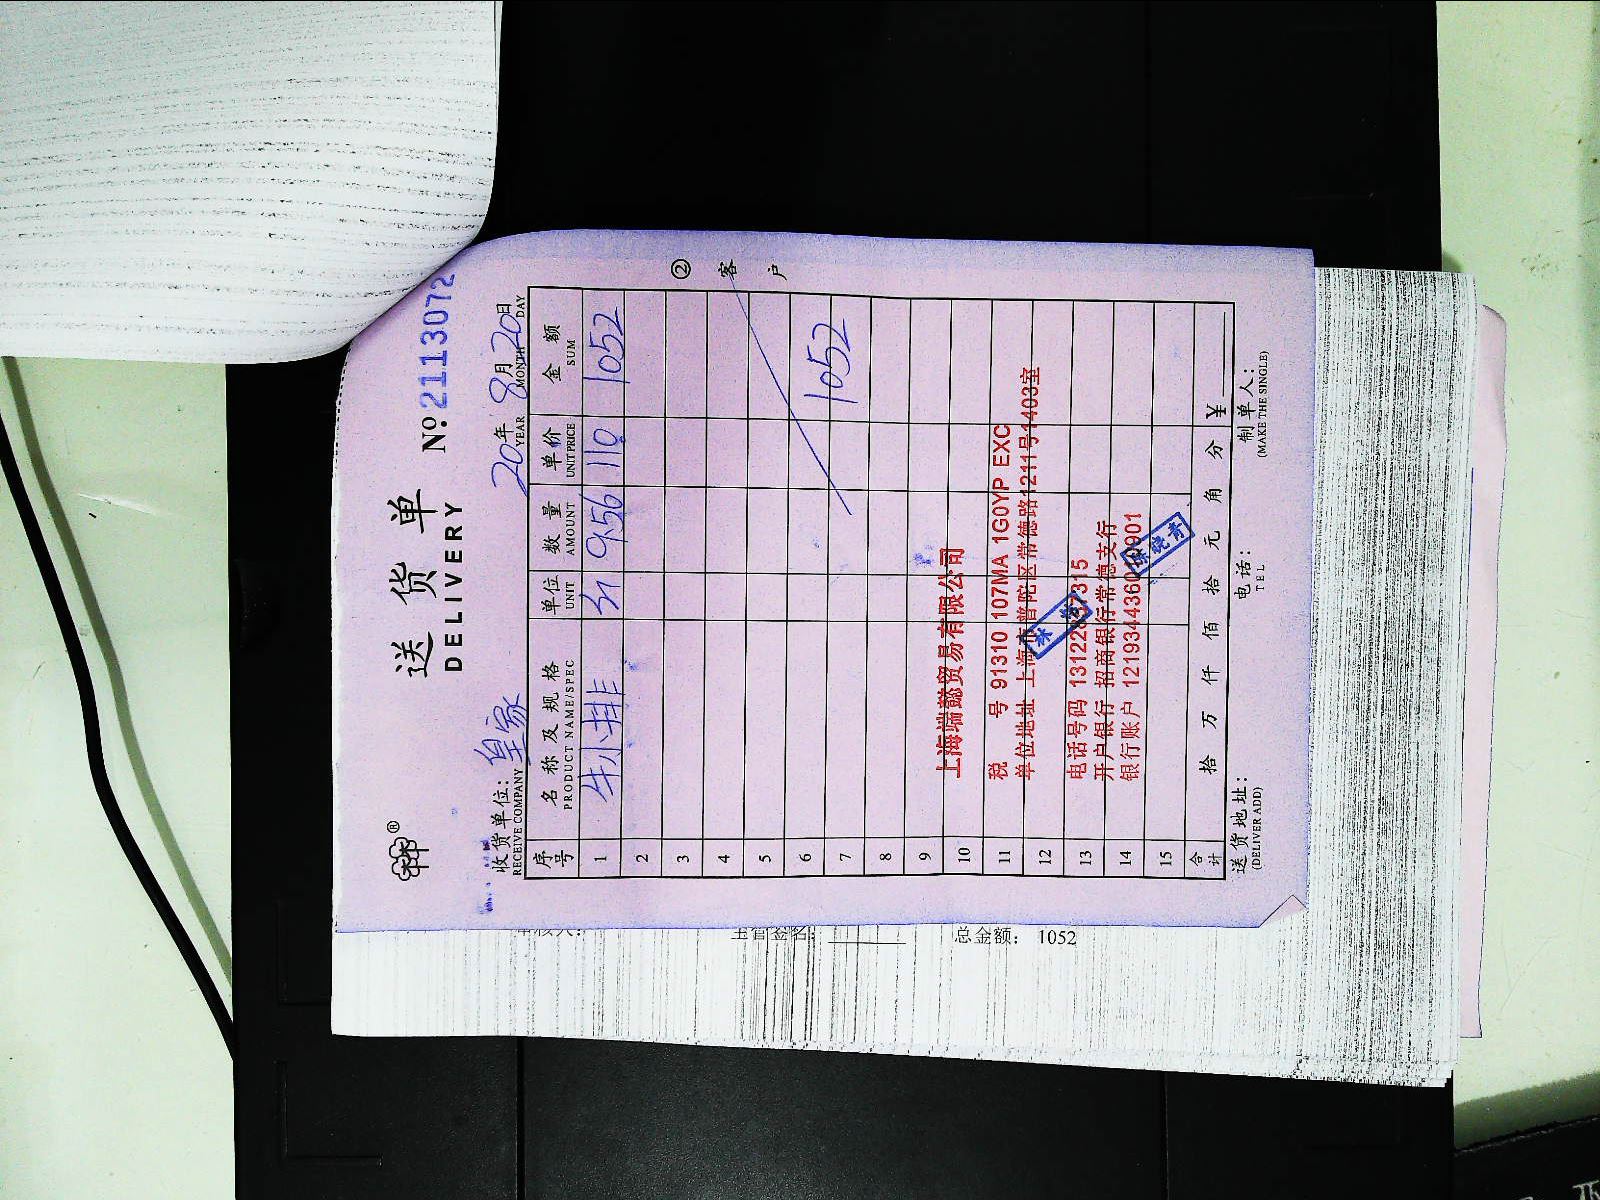 送货单
DELIVERY
No. 2113072
收货单位: 皇家
RECEIVE COMPANY
20年 8月 20日
YEAR MONTH DAY
序号 名称及规格 单位 数量 单价 金额
PRODUCT NAME/SPEC UNIT AMOUNT UNIT PRICE SUM
1 牛小排 斤 9.56 110 1052
2
3
4
5
6
7 1052
8
9
10
11
12
13
14
15
②客户
上海端懿贸易有限公司
税 号 91310 107MA 1G0YP EXC
单位地址 上海市普陀区常德路1211号1403室
电话号码 1312287315
开户银行 招商银行常德支行
银行账户 1219344360 901
晓青
合计 拾 万 仟 佰 拾 元 角 分 ¥
送货地址: 电话: 制单人:
(DELIVER ADD) TEL (MAKE THE SINGLE)
总金额: 1052